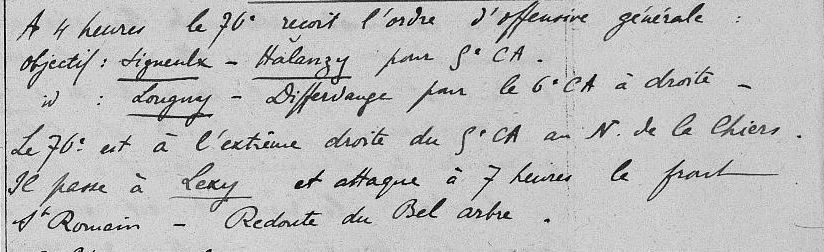 A 4 heures le 76e recoit l'ordre d'offensive générale :
Objectif : Signeulx – Hâlanzy pour 5e CA.
id : Longwy – Differdange pour le 6e CA à droite –
Le 76e est à l'extrême droite du 5e CA au N. de la Chiers.
Il passe à Lexy et attaque à 7 heures le front
St Romain – Redoute du Bel arbre.